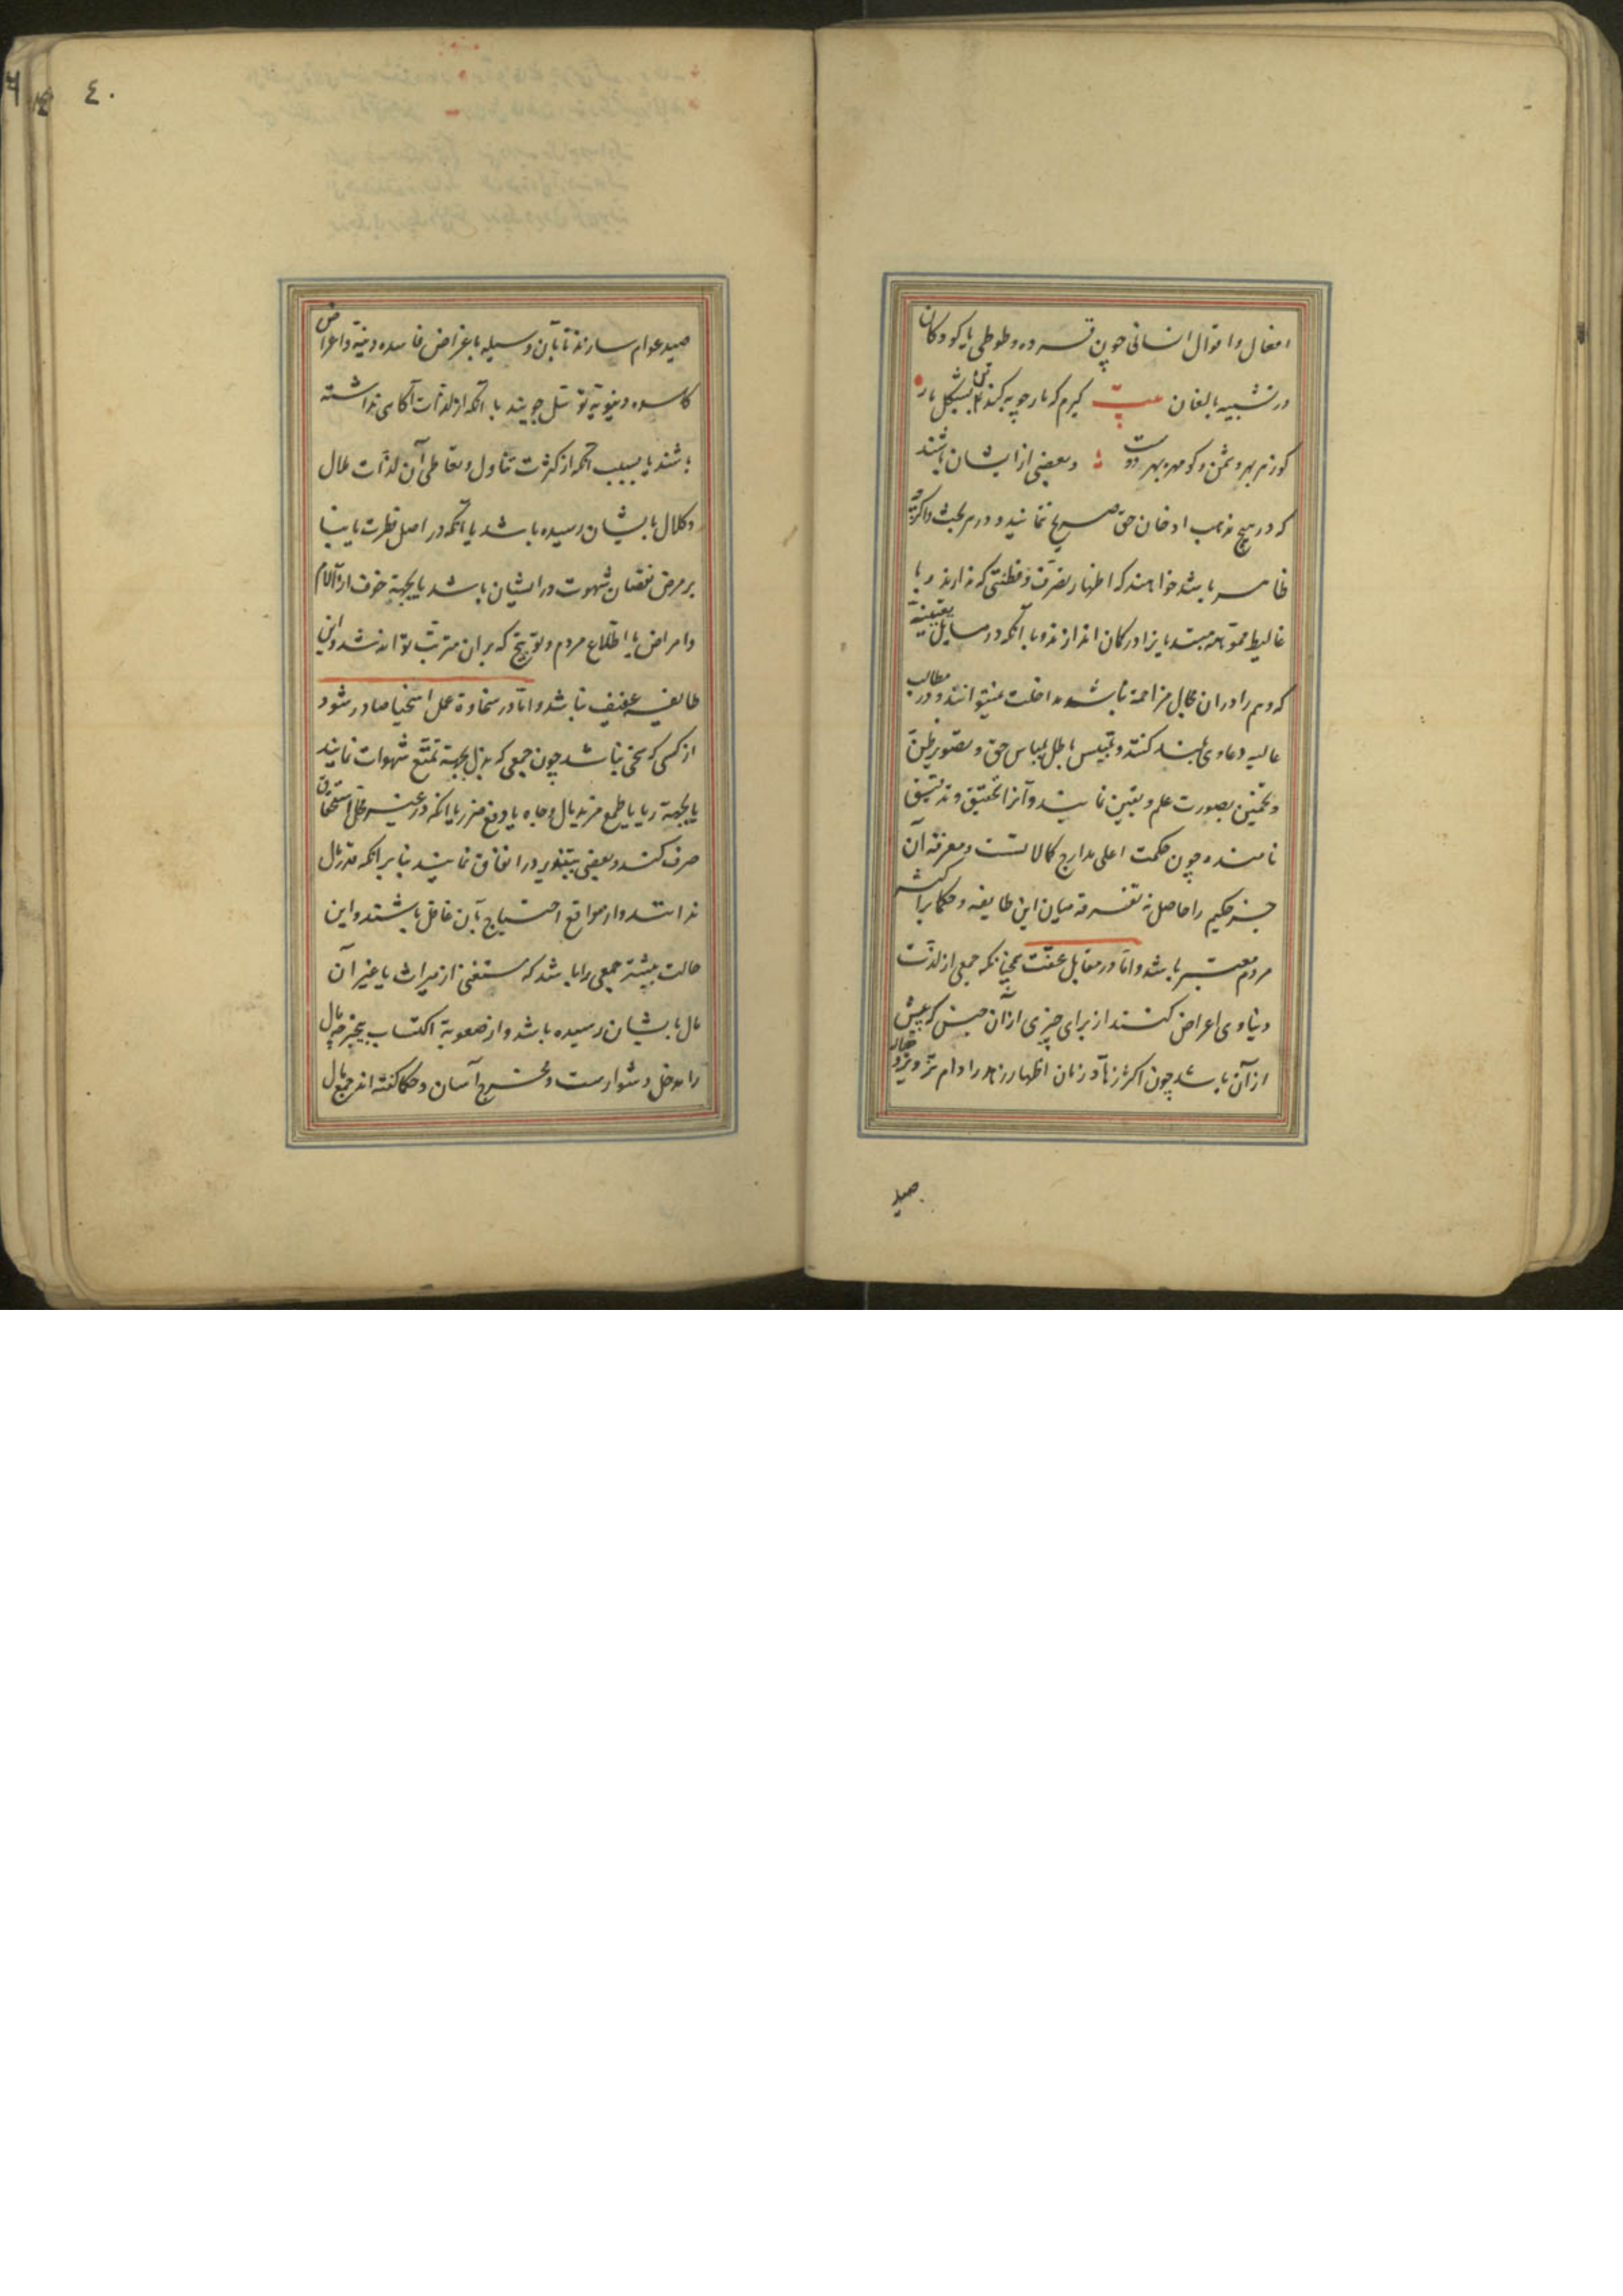 افعال و اقوال انسانی چون قرده و طوطی یا کودکان
در تشبیه ببالغان بیت گیرم که مارچوبه کند تن بشکل مار
کو زهر بهر دشمن و کو مهره بهر دوست و بعضی از ایشان باشند
که در هیچ مذهب اذعان حق صریح ننمایند و در هر بحث و اگرچه
ظاهر باشد خواهند که اظهار تصرف و فطنتی که ندارند و با
غالیط مموهه مبتدیانرا در گمان اندازند و با آنکه در مسایل یقینیه
که وهم را در ان مجال مزاحمة نباشد مداخلت نمیتوانند و در مطالب
عالیه دعاوی بلند کنند و تلبیس باطل بلباس حق و تصویر ظن
و تخمین بصورت علم و یقین نمایند و آنرا تحقیق و تدقیق
نامند و چون حکمت اعلی مدارج کمالاتست و معرفة آن
جز حکیم را حاصل نه تفرقه میان این طایفه و حکما بر اکثر
مردم متعسر باشد و اما در مقابل عفت همچنانکه جمعی از لذت
دنیاوی اعراض کنند از برای چیزی از آن جنس که بیش
از آن باشد چون اکثر زهاد زمان اظهار زهد را دام تزویر
صید
٤٠
صید عوام سازند تا بآن وسیله باغراض فاسده دنیه و اعراض
کاسده دنیویه توسل جویند با آنکه از لذات آگاهی نداشته
باشند یا بسبب آنکه از کثرت تناول و تعاطی آن لذات ملال
و کلال بایشان رسیده باشد یا آنکه در اصل فطرت یا بنا
بر مرض نقصان شهوت در ایشان باشد یا بجهة خوف از آلام
و امراض یا اطلاع مردم و توبیخ که بران مترتب تواند شد و این
طایفه عفیف نباشد و اما در سخاوة عمل اسخیا صادر شود
از کسی که سخی نباشد چون جمعی که بذل بجهة تمتع شهوات نمایند
یا بجهة ریا یا طمع مزید مال و جاه یا دفع ضرر یا انکه در غیر محل استحقاق
صرف کنند و بعضی بتبذیر در انفاق نمایند بنا بر انکه قدر مال
ندانند و از مواقع احتیاج بآن غافل باشند و این
حالت بیشتر جمعی را باشد که مستغنی از میراث یا غیر آن
مال بایشان رسیده باشد و از صعوبة اکتساب بیخبر چه مال
را مدخل دشوارست و مخرج آسان و حکما گفته اند جمع مال